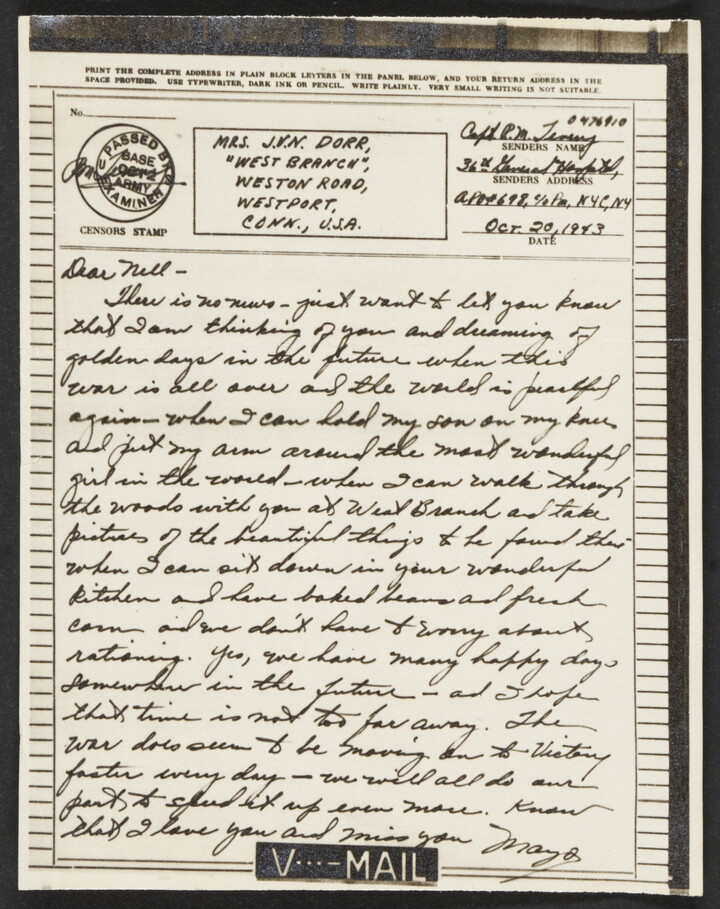 PRINT THE COMPLETE ADDRESS IN PLAIN BLOCK LETTERS IN THE PANEL BELOW, AND YOUR RETURN ADDRESS IN THE
SPACE PROVIDED. USE TYPEWRITER, DARK INK OR PENCIL. WRITE PLAINLY. VERY SMALL WRITING IS NOT SUITABLE.
No.
PASSED BY
BASE
ARMY
EXAMINER
CENSORS STAMP
MRS. J.V.N. DORR,
"WEST BRANCH",
WESTON ROAD,
WESTPORT,
CONN., U.S.A.
0476910
Capt. P.M.
SENDERS NAME
36th General Hospital,
SENDERS ADDRESS
APO #698, c/o Pm, NYC, NY
Oct. 20, 1943
DATE
Dear Nell -
There is no news - just want to let you know
that I am thinking of you and dreaming of
golden days in the future when this
war is all over and the world is peaceful
again - when I can hold my son on my knee
and put my arm around the most wonderful
girl in the world - when I can walk through
the woods with you at West Branch and take
pictures of the beautiful things to be found there -
when I can sit down in your wonderful
kitchen and have baked beans and fresh
corn and we don't have to worry about
rationing. Yes, we have many happy days
somewhere in the future - and I hope
that time is not too far away. The
war does seem to be moving on to Victory
faster every day - we will all do our
part to speed it up even more. Know
that I love you and miss you Mayo
V···—MAIL